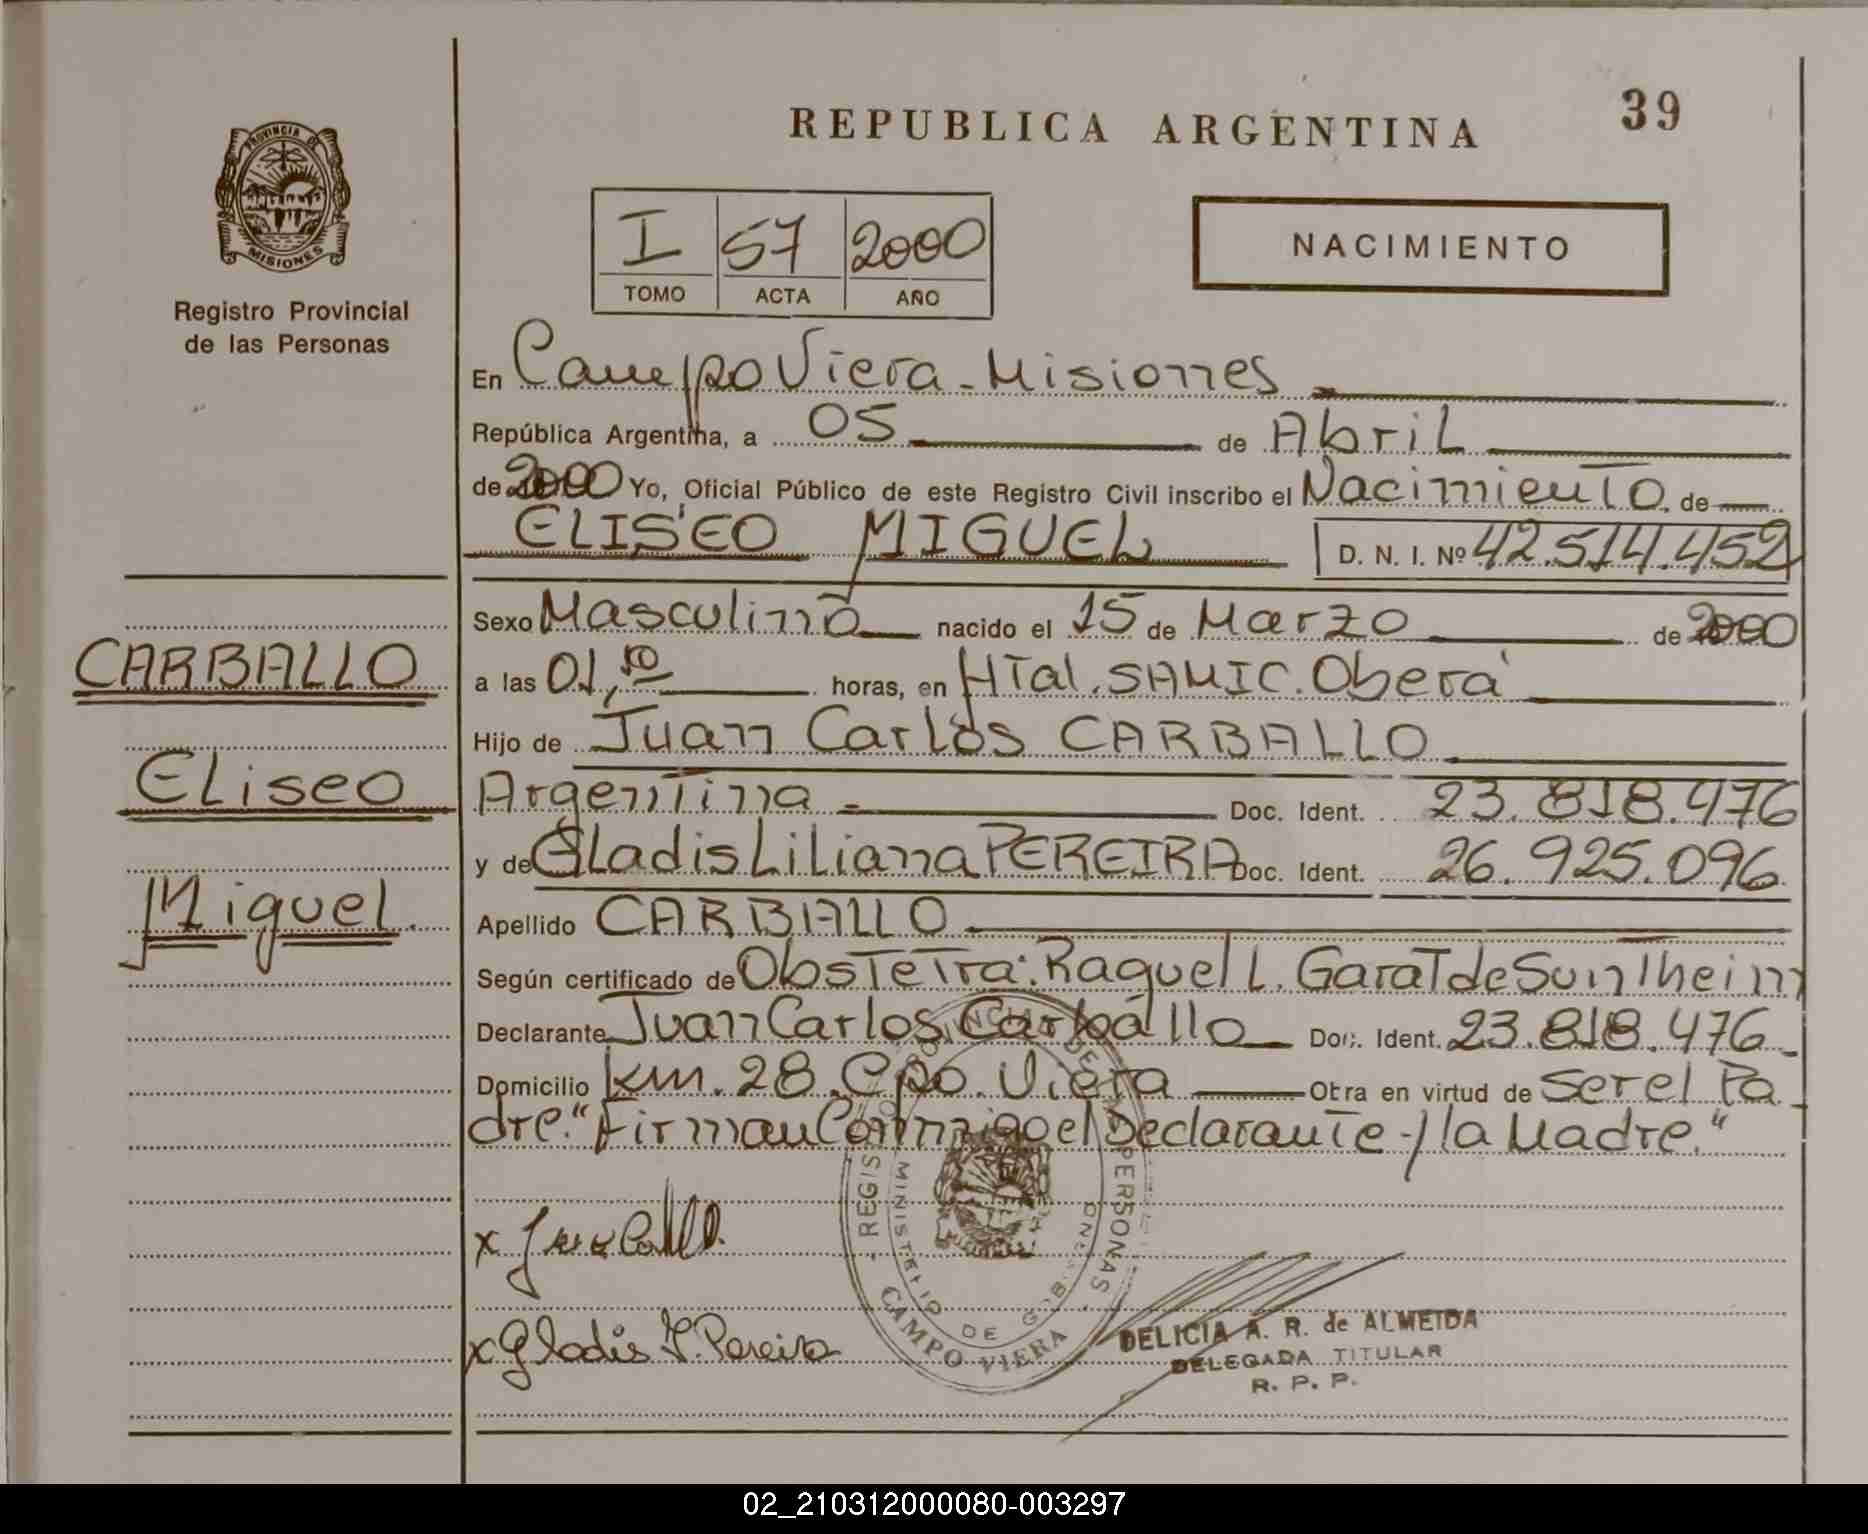 39
REPUBLICA ARGENTINA
PROVINCIA DE
MISIONES
Registro Provincial
de las Personas
I 57 2000
TOMO ACTA AÑO
NACIMIENTO
En Campo Viera - Misiones
República Argentina, a 05 de Abril
de 2000 Yo, Oficial Público de este Registro Civil inscribo el Nacimiento de
ELISEO MIGUEL D. N. I. Nº 42.514.452
Sexo Masculino nacido el 15 de Marzo de 2000
CARBALLO
a las 01,10 horas, en Htal. SAMIC. Oberá
Hijo de Juan Carlos CARBALLO
Eliseo
Argentina Doc. Ident. 23.818.476
y de Gladis Liliana PEREIRA Doc. Ident. 26.925.096
Miguel.
Apellido CARBALLO
Según certificado de Obstetra: Raquel L. Garat de Suntheim
Declarante Juan Carlos Carballo Doc. Ident. 23.818.476
Domicilio km. 28. Cpo. Viera Otra en virtud de Ser el Pa
dre." Firman Conmigo el Declarante - / la Madre."
REGIS PROVINCIAL DE PERSONAS
MINISTERIO DE GOB.
CAMPO VIERA
x
x Gladis L. Pereira
DELICIA A. R. de ALMEIDA
DELEGADA TITULAR
R. P. P.
02_210312000080-003297